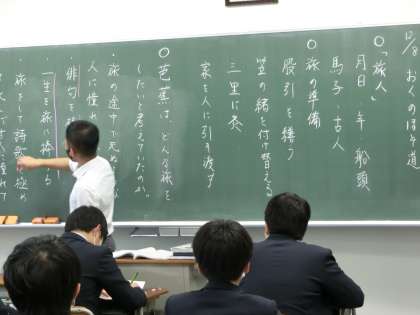 12/8 おくのほそ道
○「旅人」
月日・年・船頭
馬子・古人
○旅の準備
股引を繕う
笠の緒を付け替える
三里に灸
家を人に引き渡す
○芭蕉は、どんな旅を
したいと考えていたのか。
・旅の途中で死ぬ
人に憧れ
俳句を
・一生を旅に捧
・旅をして詩歌を極め